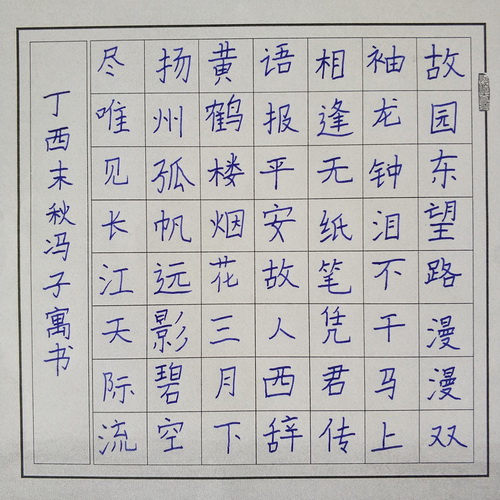 故园东望路漫漫双
袖龙钟泪不干马上
相逢无纸笔凭君传
语报平安故人西辞
黄鹤楼烟花三月下
扬州孤帆远影碧空
尽唯见长江天际流
丁西末秋冯子寓书